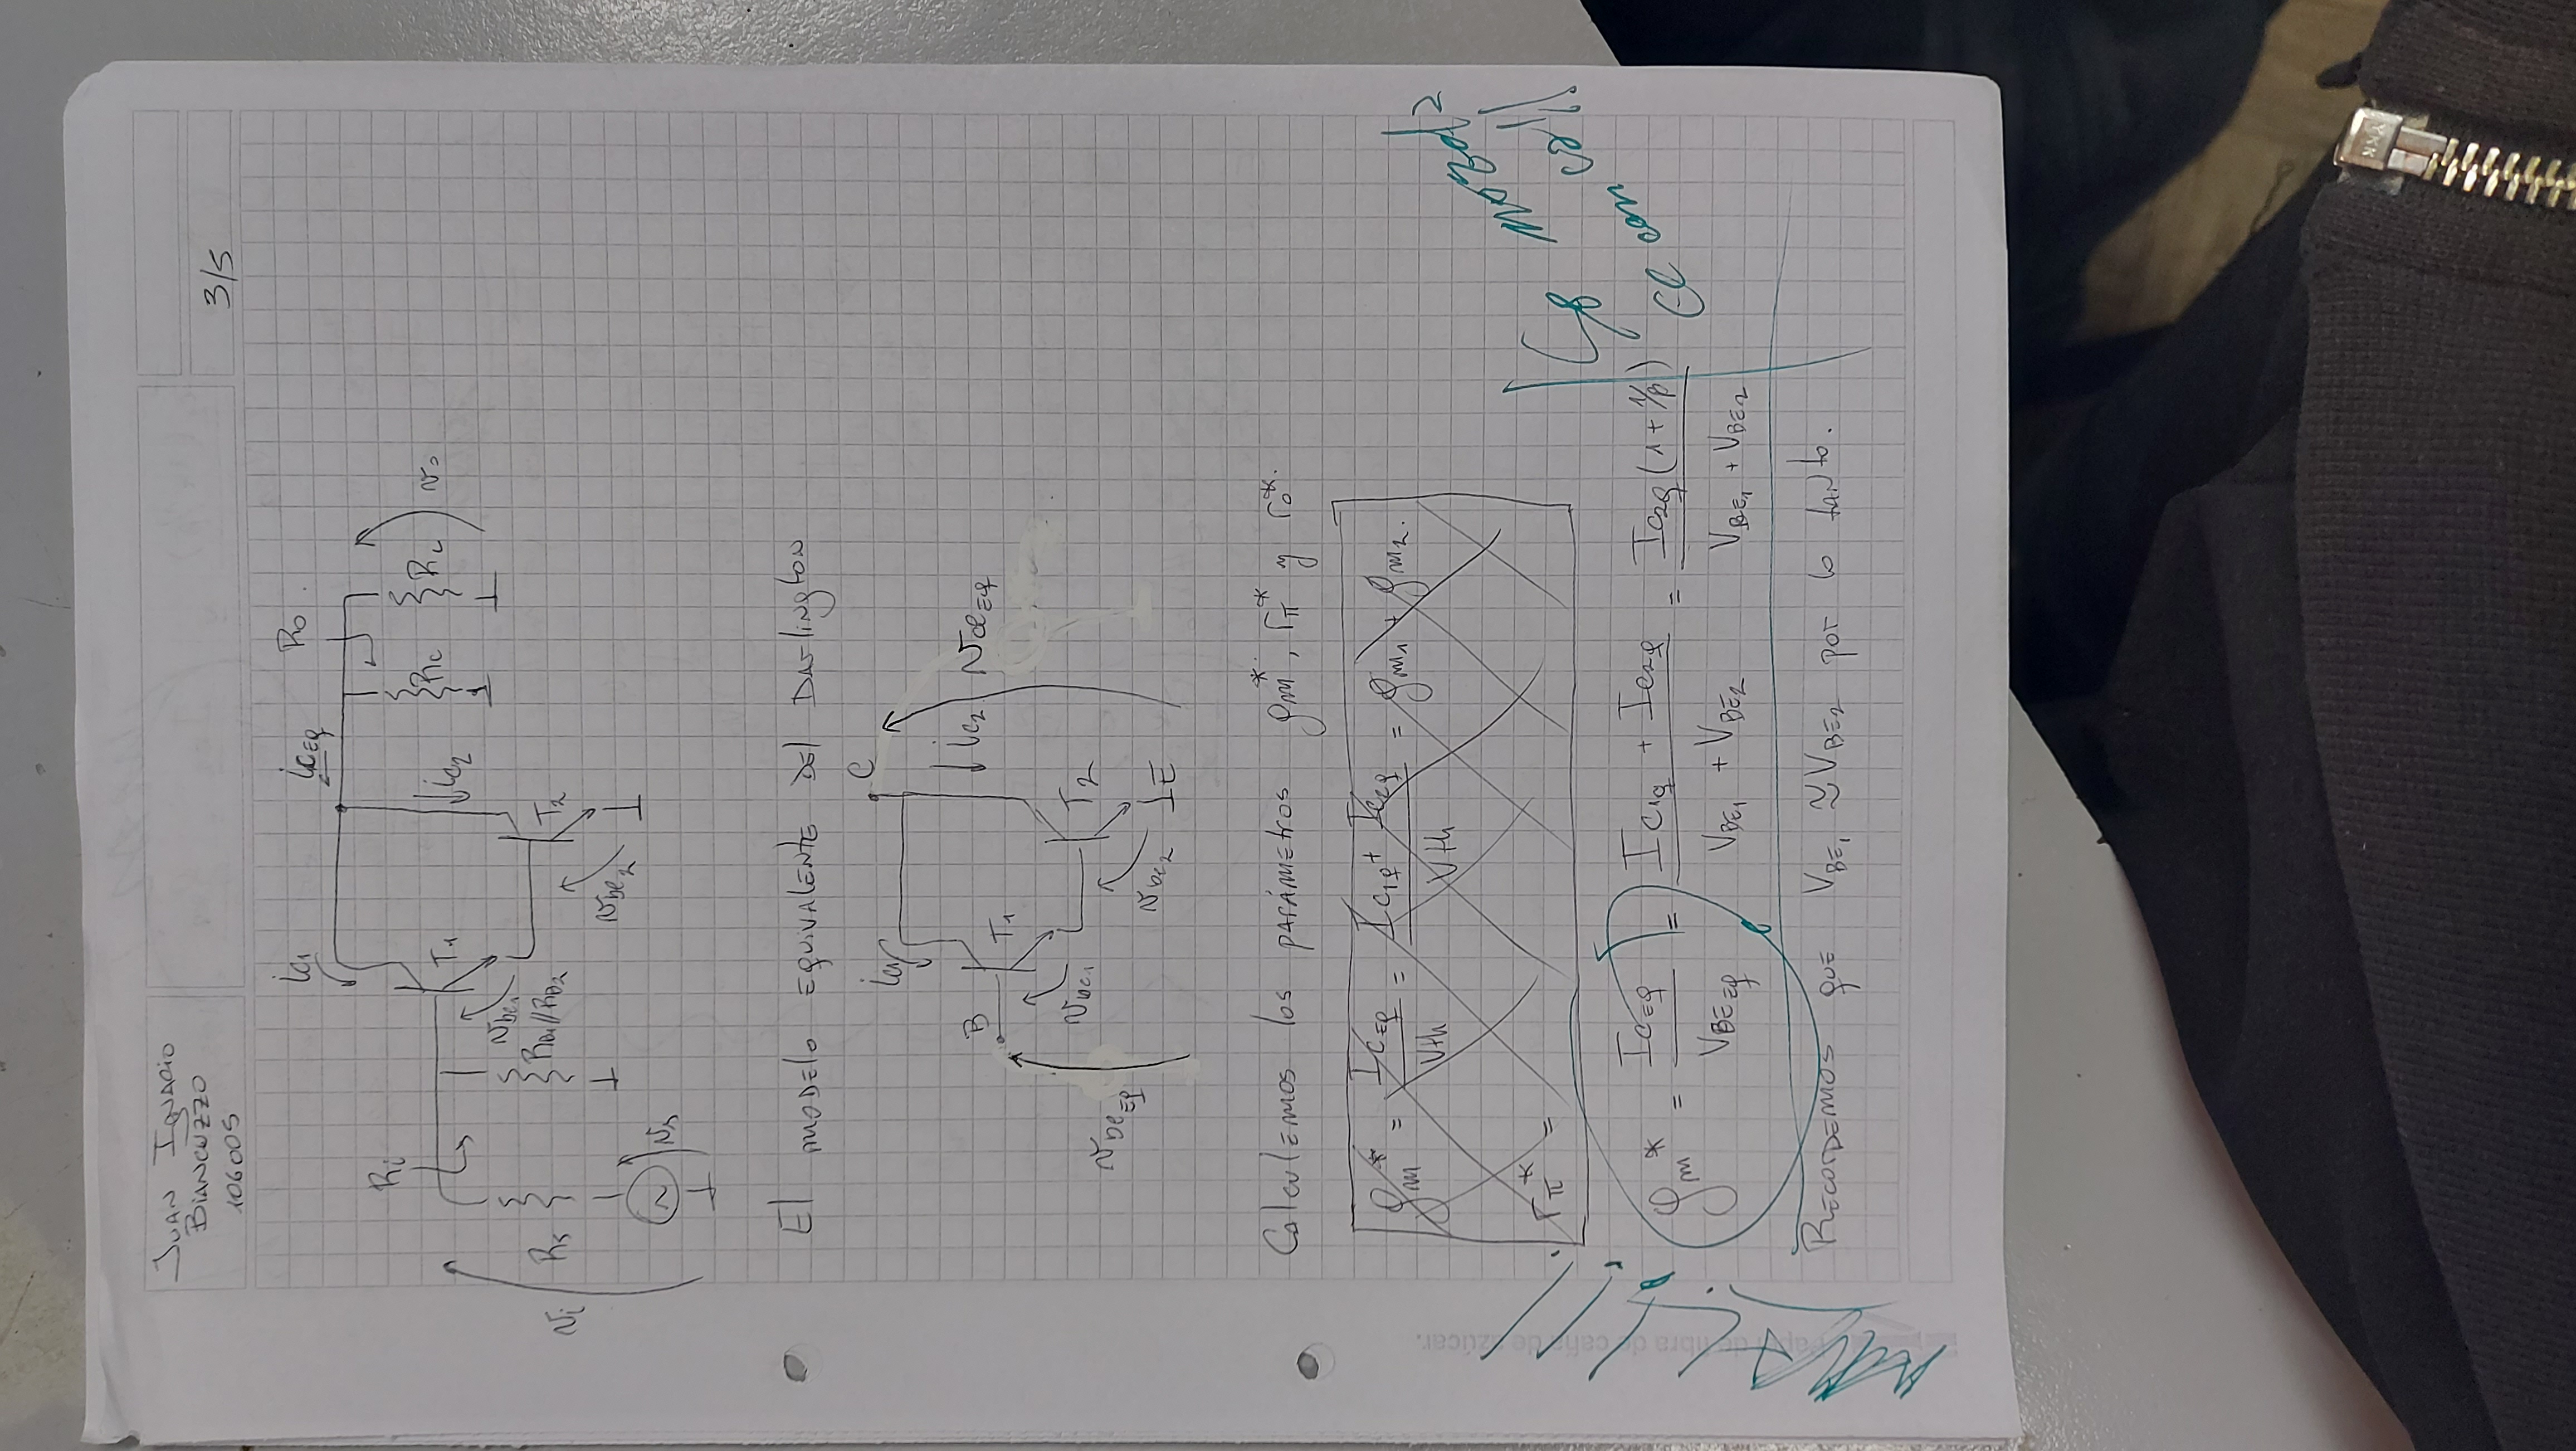 JUAN IGNACIO
BIANCUZZO
106005
3/5
ic1
icEQ
Ro
Ri
T1
Rc
RL
vo
ic2
vbe1
Rs
RB1//RB2
T2
vi
vbe2
vs
El modelo equivalente del Darlington
C
ic1
B
ic2
vceEQ
T1
vbe1
T2
vbeEQ
vbe2
E
Calculemos los parámetros gm*, rπ* y ro*.
gm* = ICEQ / Vth = (IC1Q + IC2Q) / Vth = gm1 + gm2.
rπ* =
gm* = ICEQ / VBEEQ = (IC1Q + IC2Q) / (VBE1 + VBE2) = IC2Q (1 + 1/β) / (VBE1 + VBE2)
MAL!!
Recordemos que VBE1 ≈ VBE2 por lo tanto.